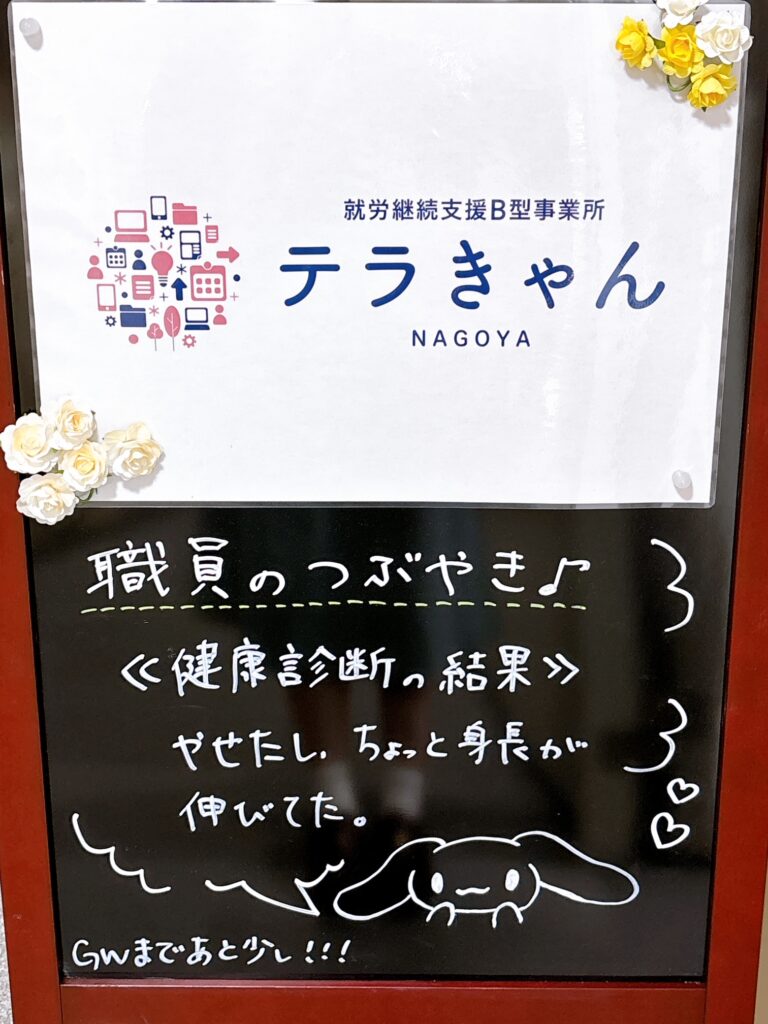 就労継続支援B型事業所
テラきゃん
NAGOYA
職員のつぶやき♪
≪健康診断の結果≫
やせたし、ちょっと身長が
伸びてた。
GWまであと少し!!!